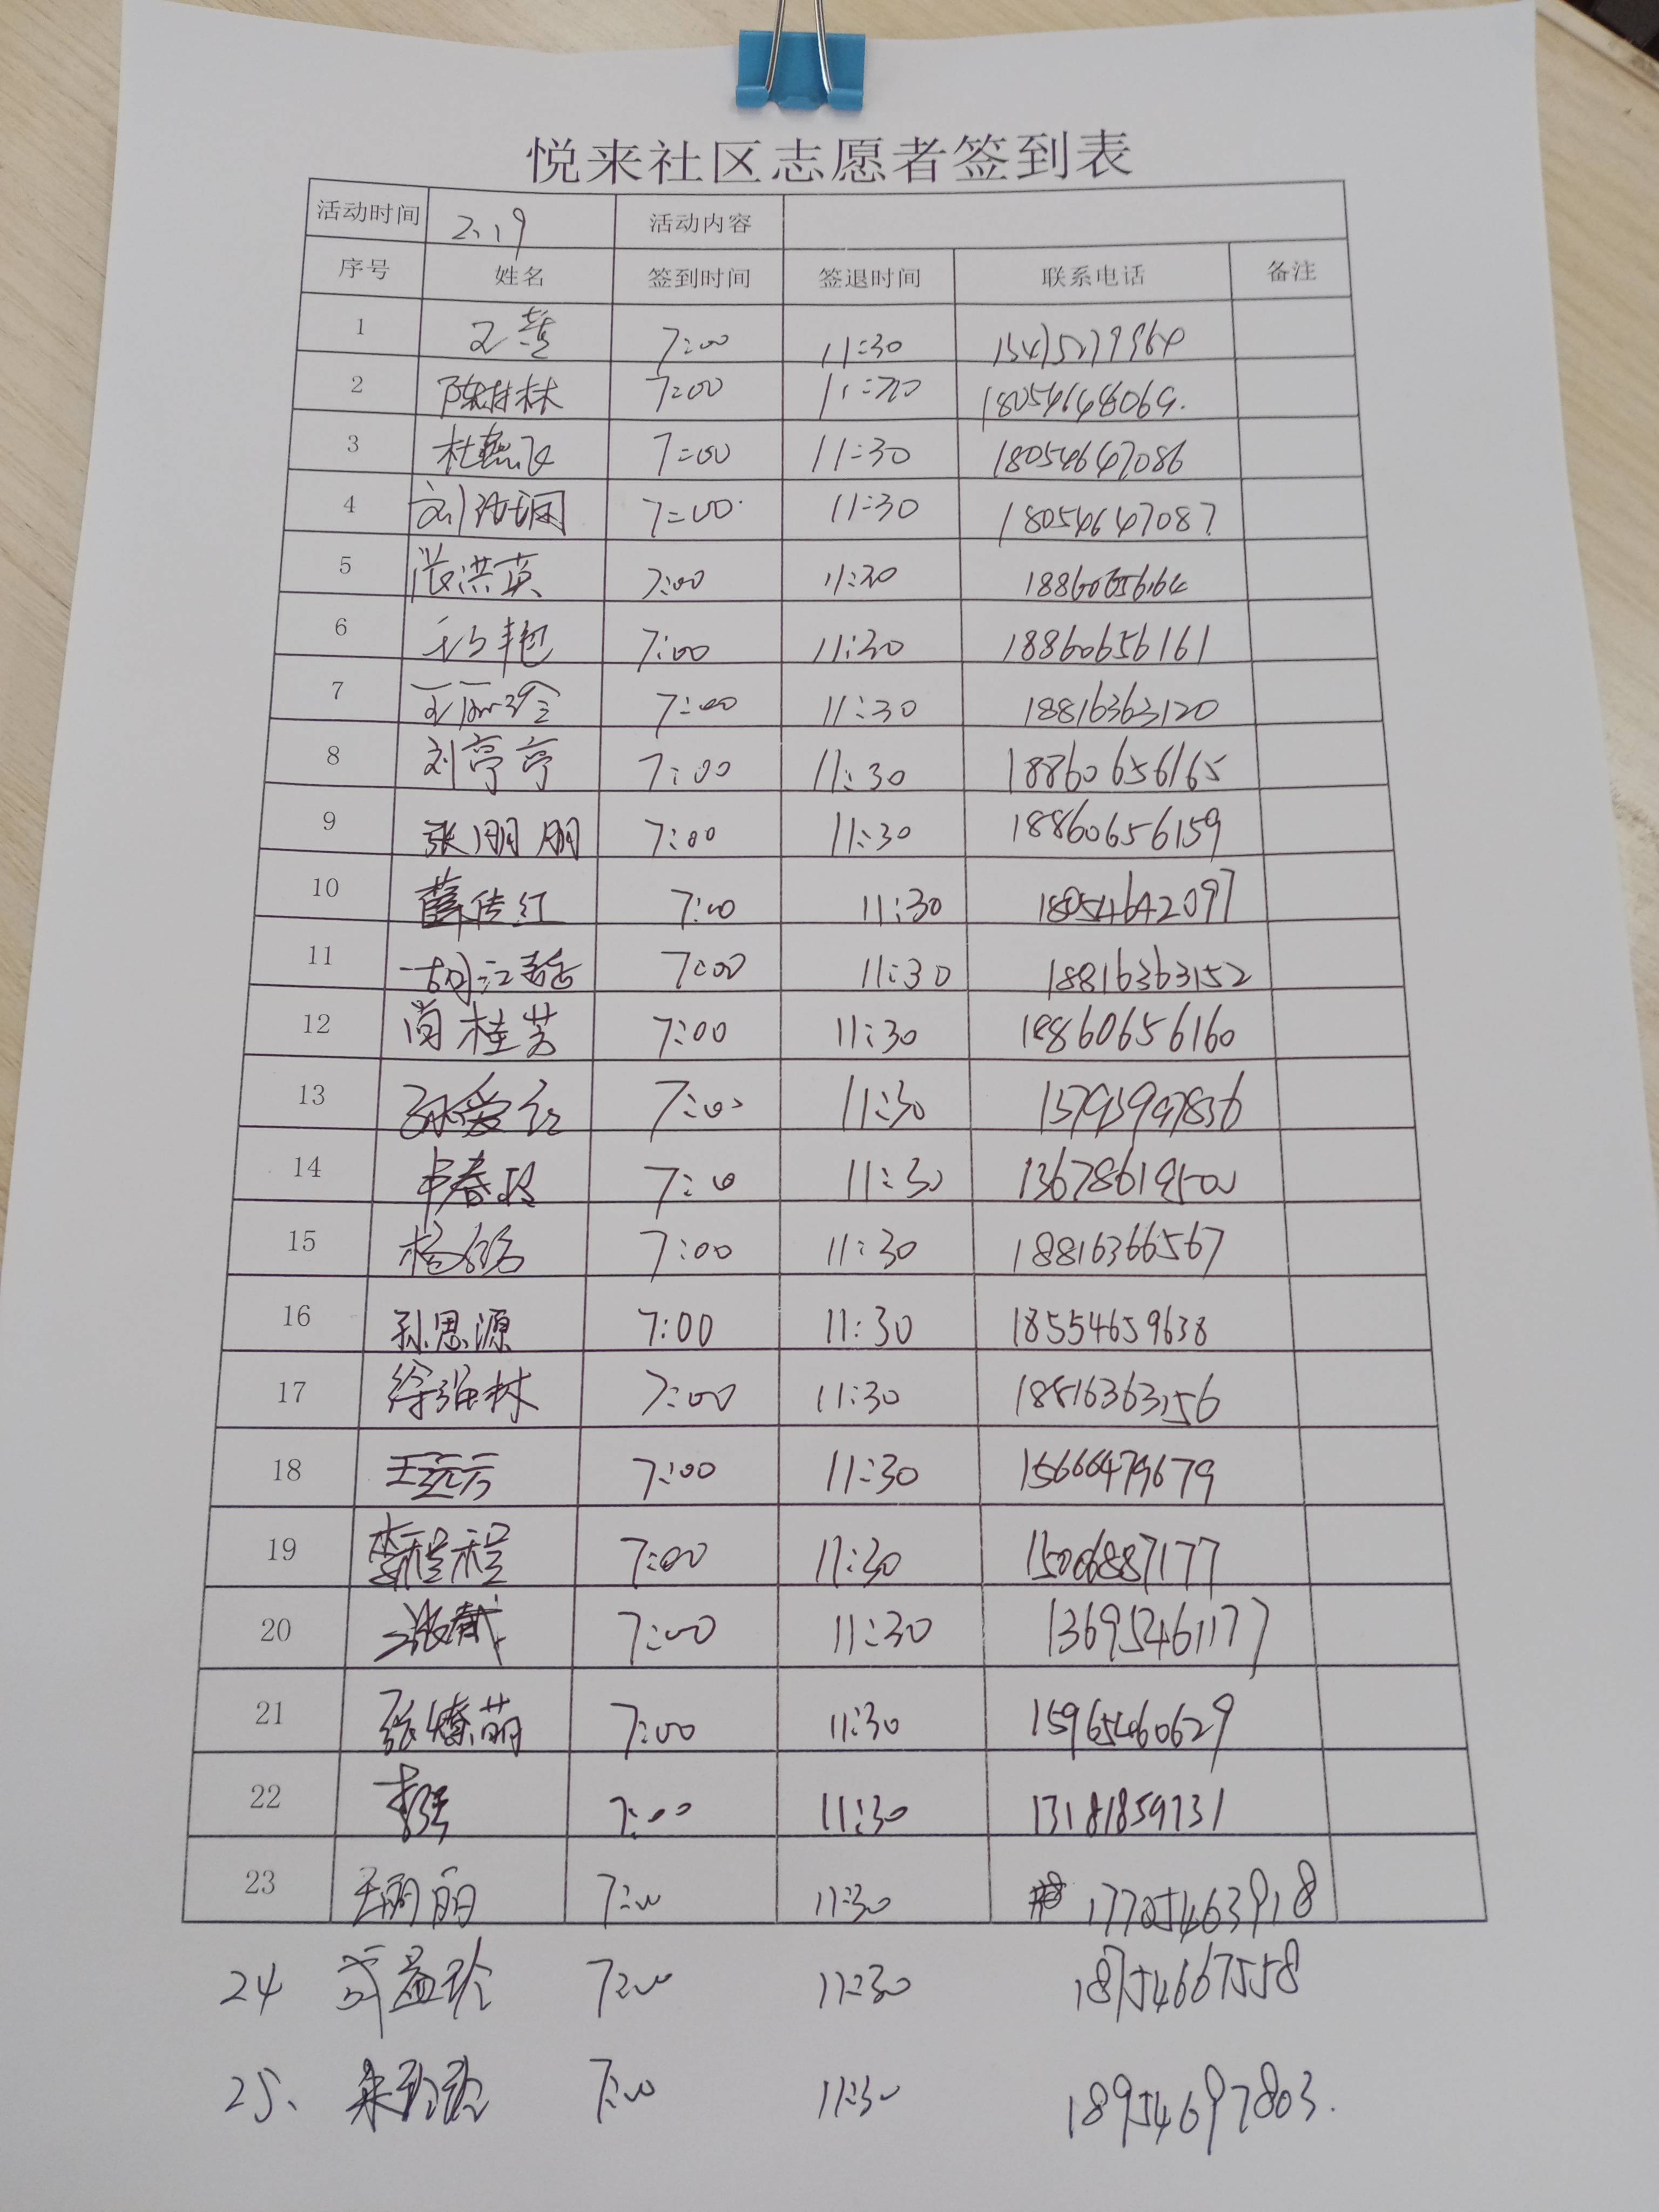 悦来社区志愿者签到表
活动时间 2.19 活动内容
序号 姓名 签到时间 签退时间 联系电话 备注
1 7:00 11:30
2 陈树林 7:00 11:30 18054648069.
3 7:00 11:30 18054647086
4 7:00 11:30 18054647087
5 张洪英 7:00 11:30 18860656164
6 7:00 11:30 18860656161
7 王丽珍 7:00 11:30 18816363120
8 刘亭亭 7:00 11:30 18860656165
9 张朋朋 7:00 11:30 18860656159
10 薛传红 7:00 11:30 18054642097
11 7:00 11:30 18816363152
12 尚桂芳 7:00 11:30 18860656160
13 孙爱红 7:00 11:30
14 7:00 11:30
15 7:00 11:30 18816366567
16 孙思源 7:00 11:30 18554659638
17 徐强林 7:00 11:30 18816363156
18 王远方 7:00 11:30 15666479679
19 李程程 7:00 11:30 15006887177
20 7:00 11:30 13695461177
21 张燎萌 7:00 11:30 15965460629
22 李强 7:00 11:30 13181859731
23 王丽丽 7:00 11:30 17705463918
24 7:00 11:30 18754667558
25、 7:00 11:30 18954697803.